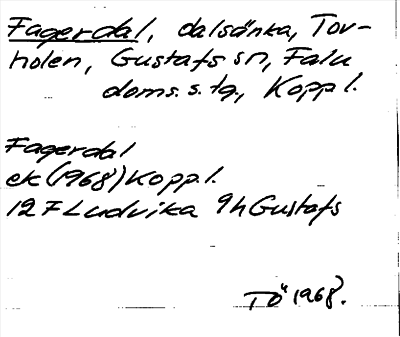 Fagerdal, dalsänka, Tov-
holen, Gustafs sn, Falu
doms. s. tg., Koppl.
Fagerdal
ek (1968) Koppl.
12 F Ludvika 9h Gustafs
TÖ 1968.